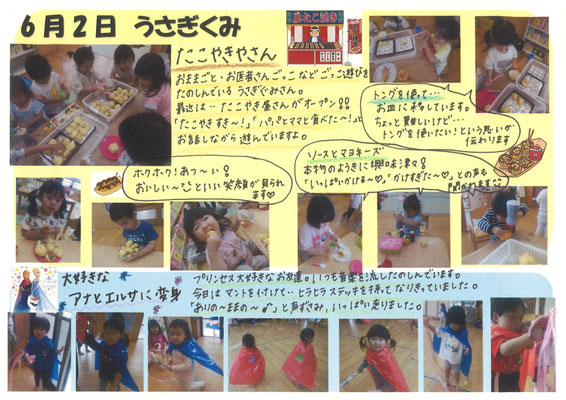 6月2日 うさぎくみ
たこ焼き
たこやきやさん
おままごと・お医者さんごっこなどごっこ遊びを
たのしんでいるうさぎぐみさん。
最近は…たこやき屋さんがオープン!!
「たこやきすき〜!」「パパとママと食べた〜!」と
お話しながら遊んでいますよ。
トングを使って…
お皿にのせています。
ちょっと難しいけど…
トングを使いたい!という思いが
伝わります
ホクホク!あつ〜い!
おいしい〜といい笑顔が見られ
ます♡
ソースとマヨネーズ
本物のようきに興味津々!
「いっぱいかける〜♡」「かけすぎた〜♡」との声も
聞かれます
大好きな
アナとエルサに変身
プリンセス大好きなお友達。いつも音楽を流したのしんでいます。
今日はマントを付けて…ヒラヒラステッキを持ってなりきっていました。
「ありの〜ままの〜♪」と声ずさみ、いっぱい走りました。